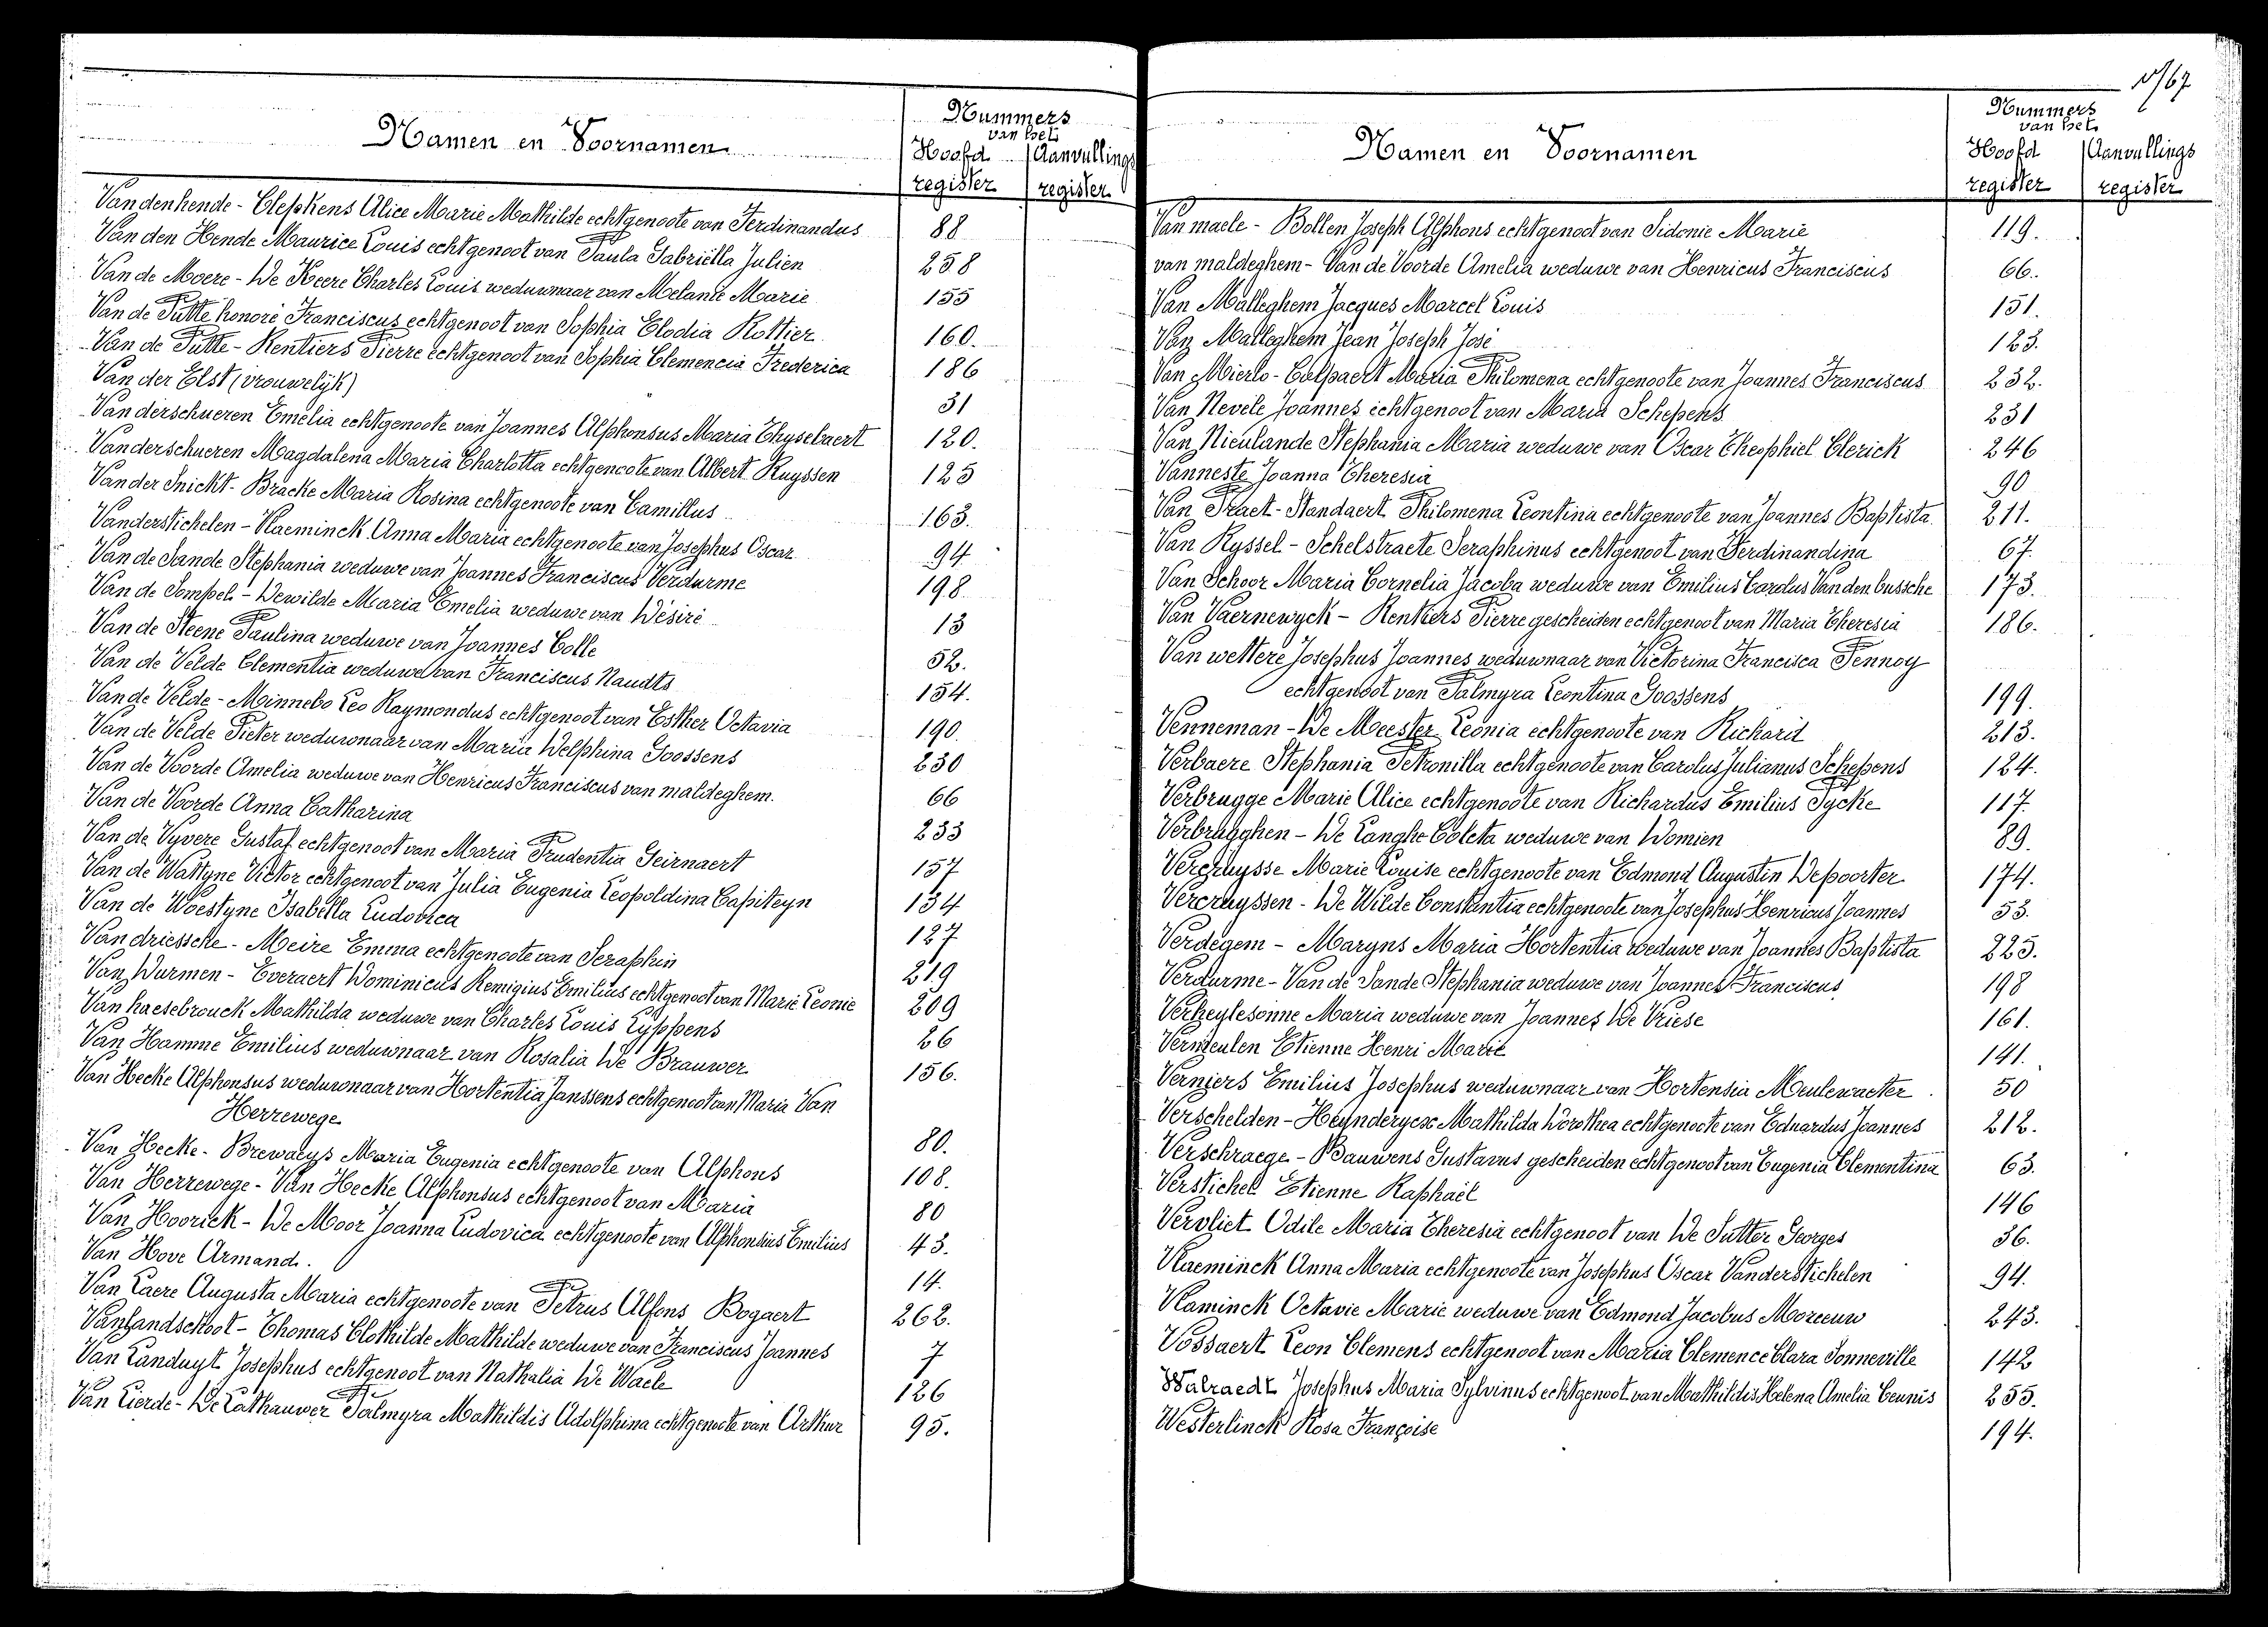 Namen en Voornamen
Nummers
van het
Hoofd register
Aanvullings register
Vandenhende - Clepkens Alice Marie Mathilde echtgenoote van Ferdinandus 88
Van den Hende Maurice Louis echtgenoot van Paula Gabriëlla Julien 258
Van de Moere - De Keere Charles Louis weduwnaar van Melanie Marie 155
Van de Putte honoré Franciscus echtgenoot van Sophia Elodia Rottier 160.
Van de Putte - Rentiers Pierre echtgenoot van Sophia Clemencia Frederica 186
Van der Elst (vrouwelijk) 31
Vanderschueren Emelia echtgenoote van Joannes Alphonsus Maria Thysebaert 120.
Vanderschueren Magdalena Maria Charlotta echtgenoote van Albert Ruyssen 125
Van der Snickt - Bracke Maria Rosina echtgenoote van Camillus 163.
Vanderstichelen - Vlaeminck Anna Maria echtgenoote van Josephus Oscar 94
Van de Sande Stephania weduwe van Joannes Franciscus Verdurme 198
Van de Sompel - Dewilde Maria Emelia weduwe van Désiré 13
Van de Steene Paulina weduwe van Joannes Colle 52.
Van de Velde Clementia weduwe van Franciscus Naudts 154.
Van de Velde - Minnebo Leo Raymondus echtgenoot van Esther Octavia 190.
Van de Velde Pieter weduwnaar van Maria Delphina Goossens 230
Van de Voorde Amelia weduwe van Henricus Franciscus van maldeghem. 66
Van de Voorde Anna Catharina 233
Van de Vyvere Gustaf echtgenoot van Maria Prudentia Geirnaert 157
Van de Wattyne Victor echtgenoot van Julia Eugenia Leopoldina Capiteyn 134
Van de Woestyne Isabella Ludovica 127
Van driessche - Meire Emma echtgenoote van Seraphin 219
Van Durmen - Everaert Dominicus Remigius Emilius echtgenoot van Marie Leonie 209
Van haesebrouck Mathilda weduwe van Charles Louis Lyppens 26
Van Hamme Emilius weduwnaar van Rosalia De Brauwer 156.
Van Hecke Alphonsus weduwnaar van Hortentia Janssens echtgenoot van Maria Van
Herrewege 80.
Van Hecke - Brewaeys Maria Eugenia echtgenoote van Alphons 108.
Van Herrewege - Van Hecke Alphonsus echtgenoot van Maria 80
Van Hoorick - De Moor Joanna Ludovica echtgenoote van Alphonsius Emilius 43.
Van Hove Armand. 14.
Van Laere Augusta Maria echtgenoote van Petrus Alfons Bogaert 262.
Vanlandschoot - Thomas Clothilde Mathilde weduwe van Franciscus Joannes 7
Van Landuyt Josephus echtgenoot van Nathalia De Waele 126
Van Lierde - De Cathauwer Palmyra Mathildis Adolphina echtgenoote van Arthur 95.
v/67
Namen en Voornamen
Nummers
van het
Hoofd register
Aanvullings register
Van maele - Bollen Joseph Alphons echtgenoot van Sidonie Marie 119.
van maldeghem - Van de Voorde Amelia weduwe van Henricus Franciscus 66.
Van Malleghem Jacques Marcel Louis 151.
Van Malleghem Jean Joseph José 123.
Van Mierlo - Colpaert Maria Philomena echtgenoote van Joannes Franciscus 232.
Van Nevele Joannes echtgenoot van Maria Schepens 231
Van Nieulande Stephania Maria weduwe van Oscar Theophiel Clerick 246
Vanneste Joanna Theresia 90
Van Praet - Standaert Philomena Leontina echtgenoote van Joannes Baptista 211.
Van Ryssel - Schelstraete Seraphinus echtgenoot van Ferdinandina 67.
Van Schoor Maria Cornelia Jacoba weduwe van Emilius Carolus Van den bussche 173.
Van Vaernewyck - Rentiers Pierre gescheiden echtgenoot van Maria Theresia 186.
Van wettere Josephus Joannes weduwnaar van Victorina Francisca Pennoy
echtgenoot van Palmyra Leontina Goossens 199.
Venneman - De Meester Leonia echtgenoote van Richard 213.
Verbaere Stephania Petronilla echtgenoote van Carolus Julianus Schepens 124.
Verbrugge Marie Alice echtgenoote van Richardus Emilius Pycke 117.
Verbrugghen - De Langhe Coleta weduwe van Domien 89.
Vercruysse Marie Louise echtgenoote van Edmond Augustin Depoorter 174.
Vercruyssen - De Wilde Constantia echtgenoote van Josephus Henricus Joannes 53.
Verdegem - Maryns Maria Hortentia weduwe van Joannes Baptista 225.
Verdurme - Van de Sande Stephania weduwe van Joannes Franciscus 198
Verheylesonne Maria weduwe van Joannes De Vriese 161.
Vermeulen Etienne Henri Marie 141.
Verniers Emilius Josephus weduwnaar van Hortensia Meulewaeter 50
Verschelden - Heynderycx Mathilda Dorothea echtgenoote van Eduardus Joannes 212.
Verschraege - Bauwens Gustavus gescheiden echtgenoot van Eugenia Clementina 63.
Verstichel Etienne Raphaël 146
Vervliet Odile Maria Theresia echtgenoot van De Sutter Georges 36.
Vlaeminck Anna Maria echtgenoote van Josephus Oscar Vanderstichelen 94.
Vlaminck Octavie Marie weduwe van Edmond Jacobus Moreeuw 243.
Vossaert Leon Clemens echtgenoot van Maria Clemence Clara Sonneville 142
Walraedt Josephus Maria Sylvinus echtgenoot van Mathildis Helena Amelia Ceunis 255.
Westerlinck Rosa Françoise 194.